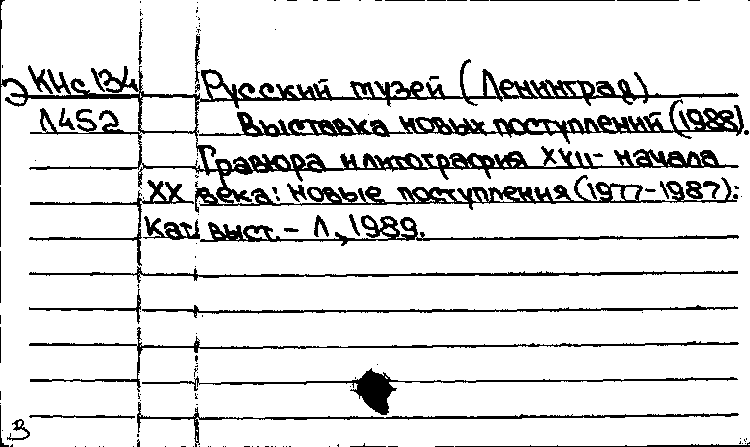 Э КНс 134 Русский музей (Ленинград).
Л452 Выставка новых поступлений (1988).
Гравюра и литография XVII- начала
XX века: новые поступления (1977-1987):
Кат. выст. - Л., 1989.
В